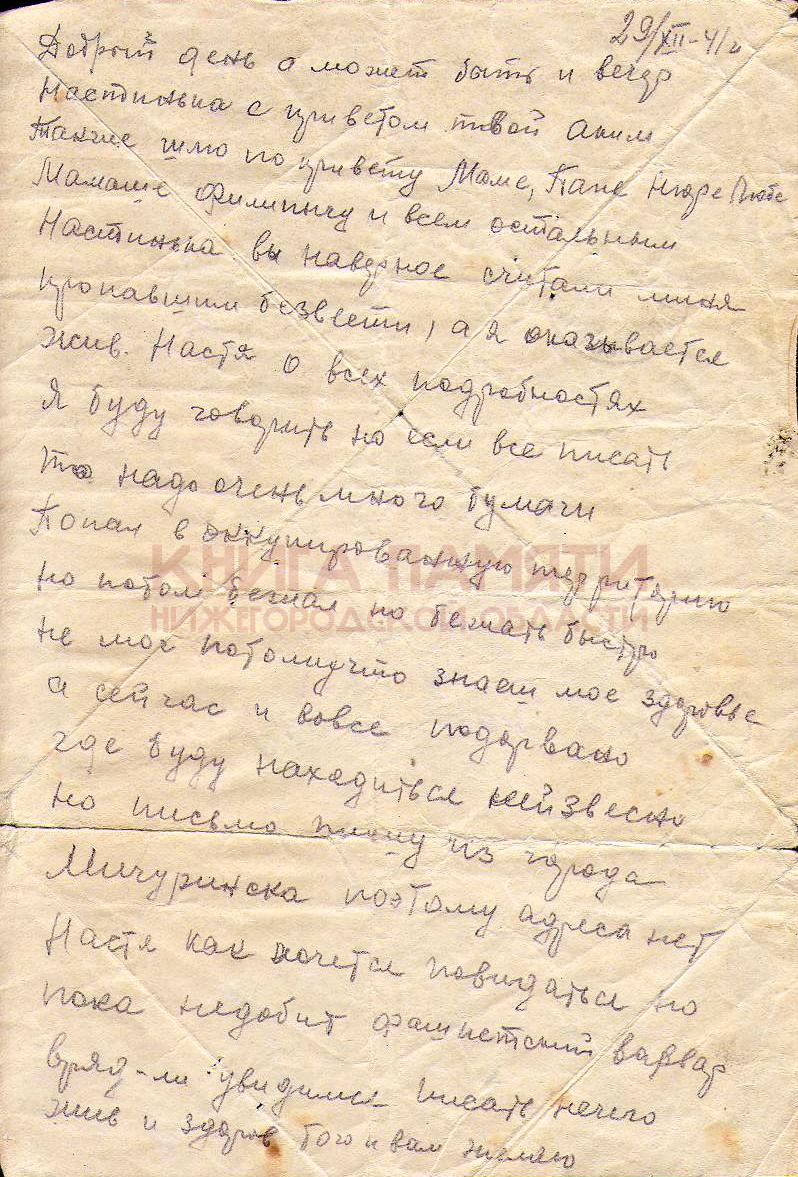 29/XII-41г
Добрый день а может быть и вечер
Настинька с приветом твой Аким
Также шлю по привету Маме, Папе Нюре Любе
Мамаше Филиппычу и всем остальным
Настинька вы наверное считали миня
пропавшим безвести, а я оказывается
жив. Настя о всех подробностях
я буду говорить но если все писать
то надо очень много бумаги
Попал в оккупированную территорию
КНИГА ПАМЯТИ
но потом бежал но бежать быстро
НИЖЕГОРОДСКОЙ ОБЛАСТИ
не мог потомучто знаеш мое здоровье
а сейчас и вовсе подорвано
где буду находиться неизвесно
но письмо пишу из города
Мичуринска поэтому адреса нет
Настя как хочется повидаться но
пока недобит фашистский варвар
вряд-ли увидимся писать нечего
жив и здоров того и вам желаю